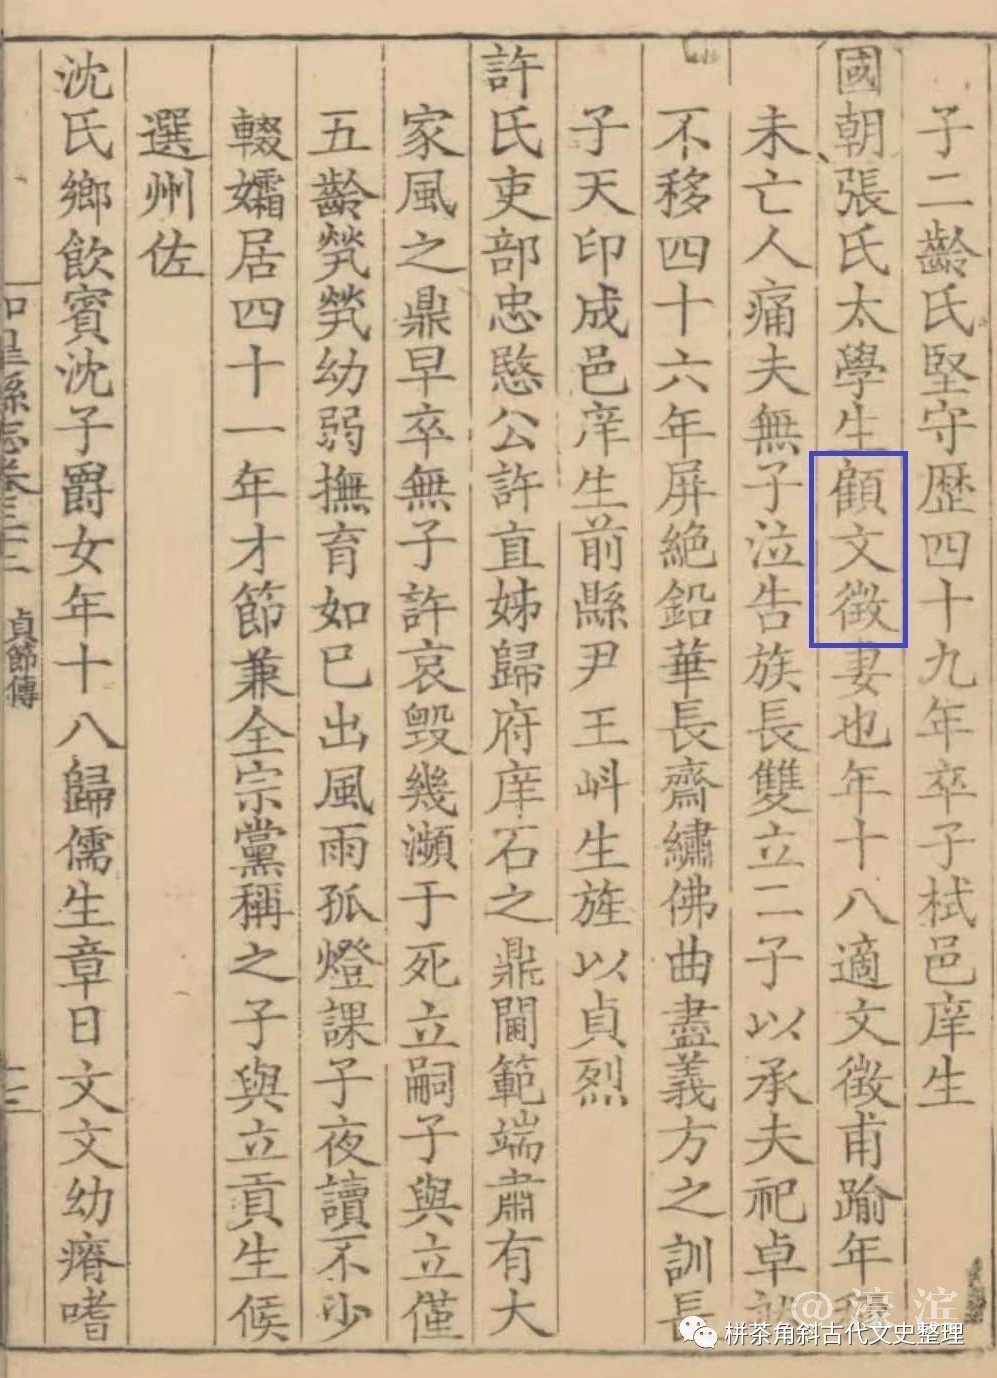 子二齡氏堅守歴四十九年卒子栻邑庠生
國朝張氏太學生顧文徵妻也年十八適文徵甫踰年稱
未亡人痛夫無子泣告族長雙立二子以承夫祀卓訓
不移四十六年屏絶鉛華長齋繡佛曲盡義方之訓長
子天印成邑庠生前縣尹王㪷生旌以貞烈
許氏吏部忠愍公許直姊歸府庠石之鼎閫範端肅有大
家風之鼎早卒無子許哀毁幾瀕于死立嗣子與立僅
五齡煢煢幼弱撫育如已出風雨孤燈課子夜讀不少
輟孀居四十一年才節兼全宗黨稱之子與立貢生候
選州佐
沈氏鄉飲賓沈子爵女年十八歸儒生章日文文幼瘠嗜
如皐縣志卷三二 貞節傳
@濠滨
栟茶角斜古代文史整理